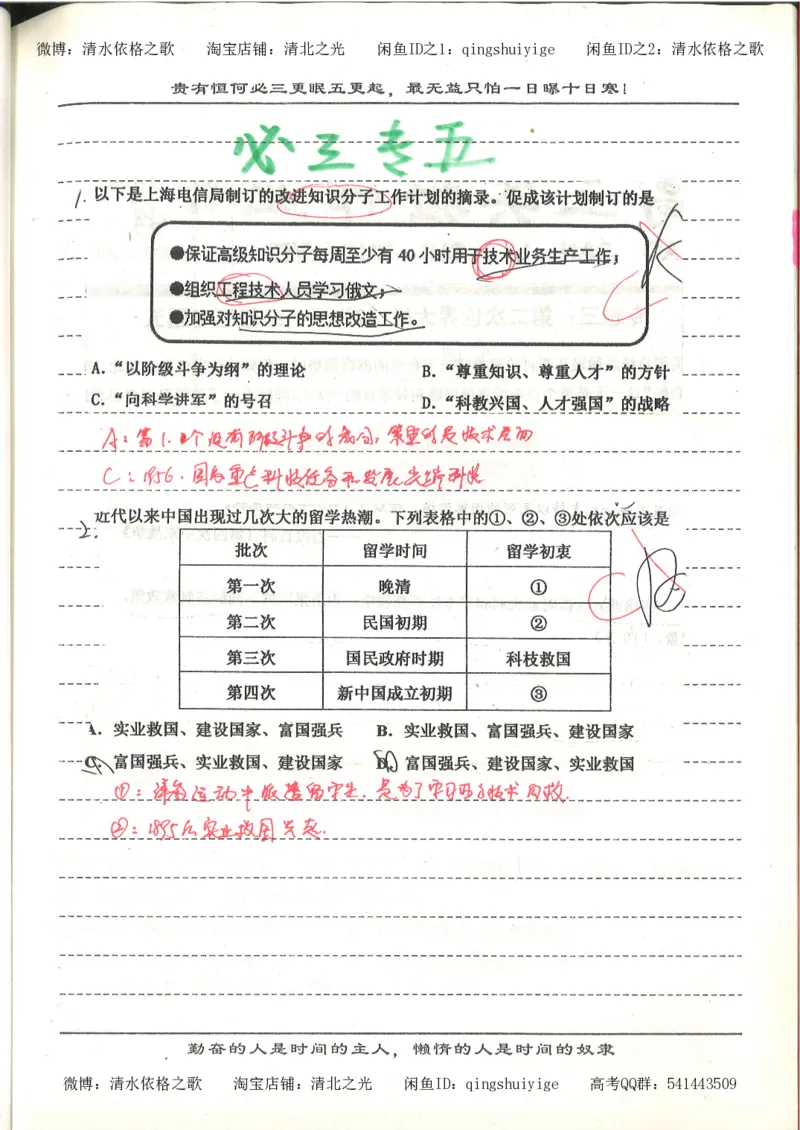 微博：清水依格之歌 淘宝店铺：清北之光 闲鱼ID之1：qingshuiyige 闲鱼ID之2：清水依格之歌
贵有恒何必三更眠五更起，最无益只怕一日曝十日寒！
必三专五
1. 以下是上海电信局制订的改进知识分子工作计划的摘录。促成该计划制订的是
●保证高级知识分子每周至少有 40 小时用于技术业务生产工作；
●组织工程技术人员学习俄文；
●加强对知识分子的思想改造工作。
C
A．“以阶级斗争为纲”的理论 B．“尊重知识、尊重人才”的方针
C．“向科学进军”的号召 D．“科教兴国、人才强国”的战略
A：第1.2个没有阶级斗争的成句，侧重的是技术层面
C：1956．国家重点科技任务和发展尖端科学
2. 近代以来中国出现过几次大的留学热潮。下列表格中的①、②、③处依次应该是
批次 留学时间 留学初衷
第一次 晚清 ①
第二次 民国初期 ②
第三次 国民政府时期 科技救国
第四次 新中国成立初期 ③
C
A．实业救国、建设国家、富国强兵 B．实业救国、富国强兵、建设国家
C．富国强兵、实业救国、建设国家 D．富国强兵、建设国家、实业救国
①：洋务运动中派遣留学生．是为了学习西方技术自救．
②：1895后实业救国兴起．
勤奋的人是时间的主人，懒惰的人是时间的奴隶
微博：清水依格之歌 淘宝店铺：清北之光 闲鱼ID：qingshuiyige 高考QQ群：541443509